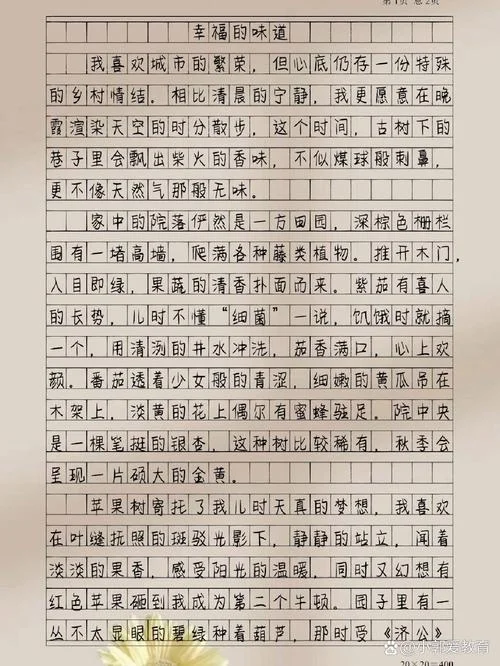 第1页 总2页
幸福的味道
我喜欢城市的繁荣，但心底仍存一份特殊
的乡村情结。相比清晨的宁静，我更愿意在晚
霞渲染天空的时分散步，这个时间，古树下的
巷子里会飘出柴火的香味，不似煤球般刺鼻，
更不像天然气那般无味。
家中的院落俨然是一方田园，深棕色栅栏
围有一堵高墙，爬满各种藤类植物。推开木门，
入目即绿，果蔬的清香扑面而来。紫茄有喜人
的长势，儿时不懂“细菌”一说，饥饿时就摘
一个，用清洌的井水冲洗，茄香满口，心上欢
颜。番茄透着少女般的青涩，细嫩的黄瓜吊在
木架上，淡黄的花上偶尔有蜜蜂驻足。院中央
是一棵笔挺的银杏，这种树比较稀有，秋季会
呈现一片硕大的金黄。
苹果树寄托了我儿时天真的梦想，我喜欢
在叶缝抚照的斑驳光影下，静静的站立，闻着
淡淡的果香，感受阳光的温暖，同时又幻想有
红色苹果砸到我成为第二个牛顿。园子里有一
丛不太显眼的碧绿种着葫芦，那时受《济公》
20×20=400
小郭爱教育